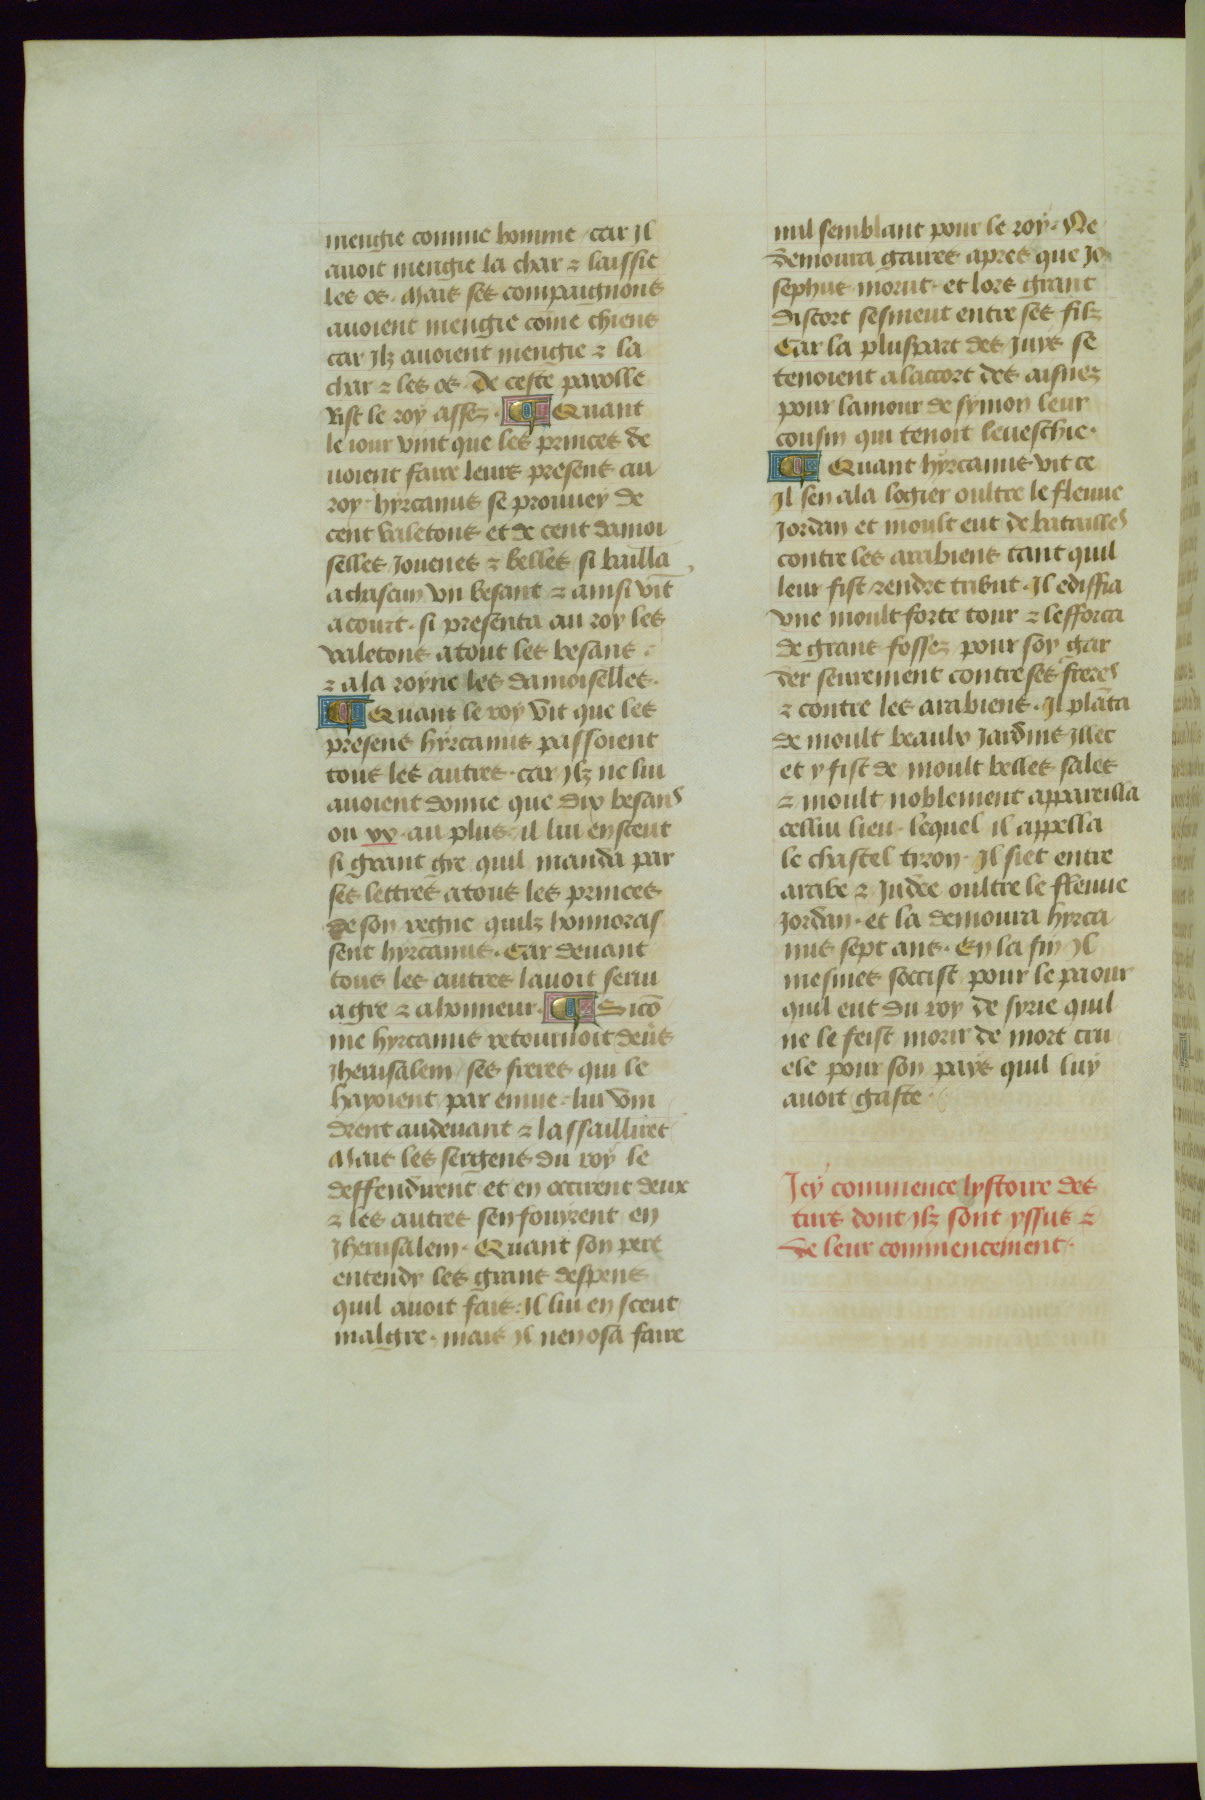 mengie comme homme / car jl
auoit mengie la char ⁊ laissie
les os. Mais ses compaignons
auoient mengie cōme chiens
car jlz auoient mengie ⁊ la
char ⁊ les os. De ceste parolle
Rist le roy assez. ¶ Quant
le iour vint que les princes de
uoient faire leurs presens au
roy. hyrcanus se prouuey de
cent valetons et de cent damoi
selles Jouenes ⁊ belles si bailla
a chascun vn besant ⁊ ainsi vīt
a court. si presenta au roy les
valetons atout les besans
⁊ a la royne les damoiselles.
¶ Quant le roy vit que les
presens hyrcanus passoient
tous les autres. car jlz ne lui
auoient donne que dix besans
ou xx. au plus. il lui en sceut
si grant gre quil manda par
ses lettres a tous les princes
de son regne quilz honnoras
sent hyrcanus. Car deuant
tous les autres lauoit serui
a gre ⁊ a honneur. ¶ Sicō
me hyrcanus retournoit deūs
Jherusalem / ses freres qui le
hayoient par enuie. lui vin
drent audeuant ⁊ lassaillirēt
Mais les sergens du roy le
deffendirent et en occirent deux
⁊ les autres sen fouyrent en
Jherusalem. Quant son pere
entendy les grans despens
quil auoit fais. Il lui en sceut
malgre. mais jl nen osa faire
nul semblant pour le roy. Ne
demoura gaires apres que Jo
sephus morut. et lors grant
discort sesmeut entre ses filz
Car la pluspart des Juys se
tenoient a laccort des aisnez
pour lamour de symon leur
cousin qui tenoit leueschie.
¶ Quant hyrcanus vit ce
Jl sen ala logier oultre le fleuue
Jordan et moult eut de batailles
contre les arabiens tant quil
leur fist rendre tribut. Il ediffia
vne moult forte tour ⁊ lefforca
de grans fossez pour soy gar
der seurement contre ses freres
⁊ contre les arabiens. Il plāta
de moult beaulx Jardins Jllec
et y fist de moult belles sales
⁊ moult noblement appareilla
cellui lieu. lequel il appella
le chastel tiron. Il siet entre
arabe ⁊ Judee oultre le fleuue
Jordan. et la demoura hyrca
nus sept ans. En la fin Jl
mesmes soccist pour le paour
quil eut du roy de syrie quil
ne le feist morir de mort cru
ele pour son pays quil luy
auoit gaste.
Jcy commence lystoire des
turs dont jlz sont yssus ⁊
de leur commencement.